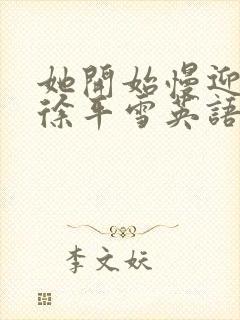 她開始慢迎
徐平雪英語
李文妖